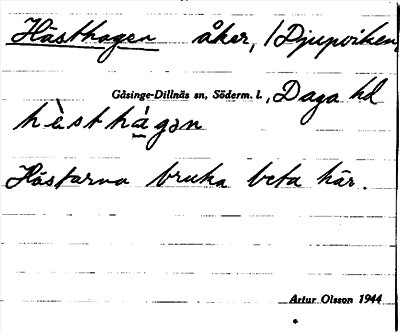 Hästhagen åker, /Djupviken,
Gåsinge-Dillnäs sn, Söderm. l., Daga hd
hὲsthágən
Hästarna bruka beta här.
Artur Olsson 1944